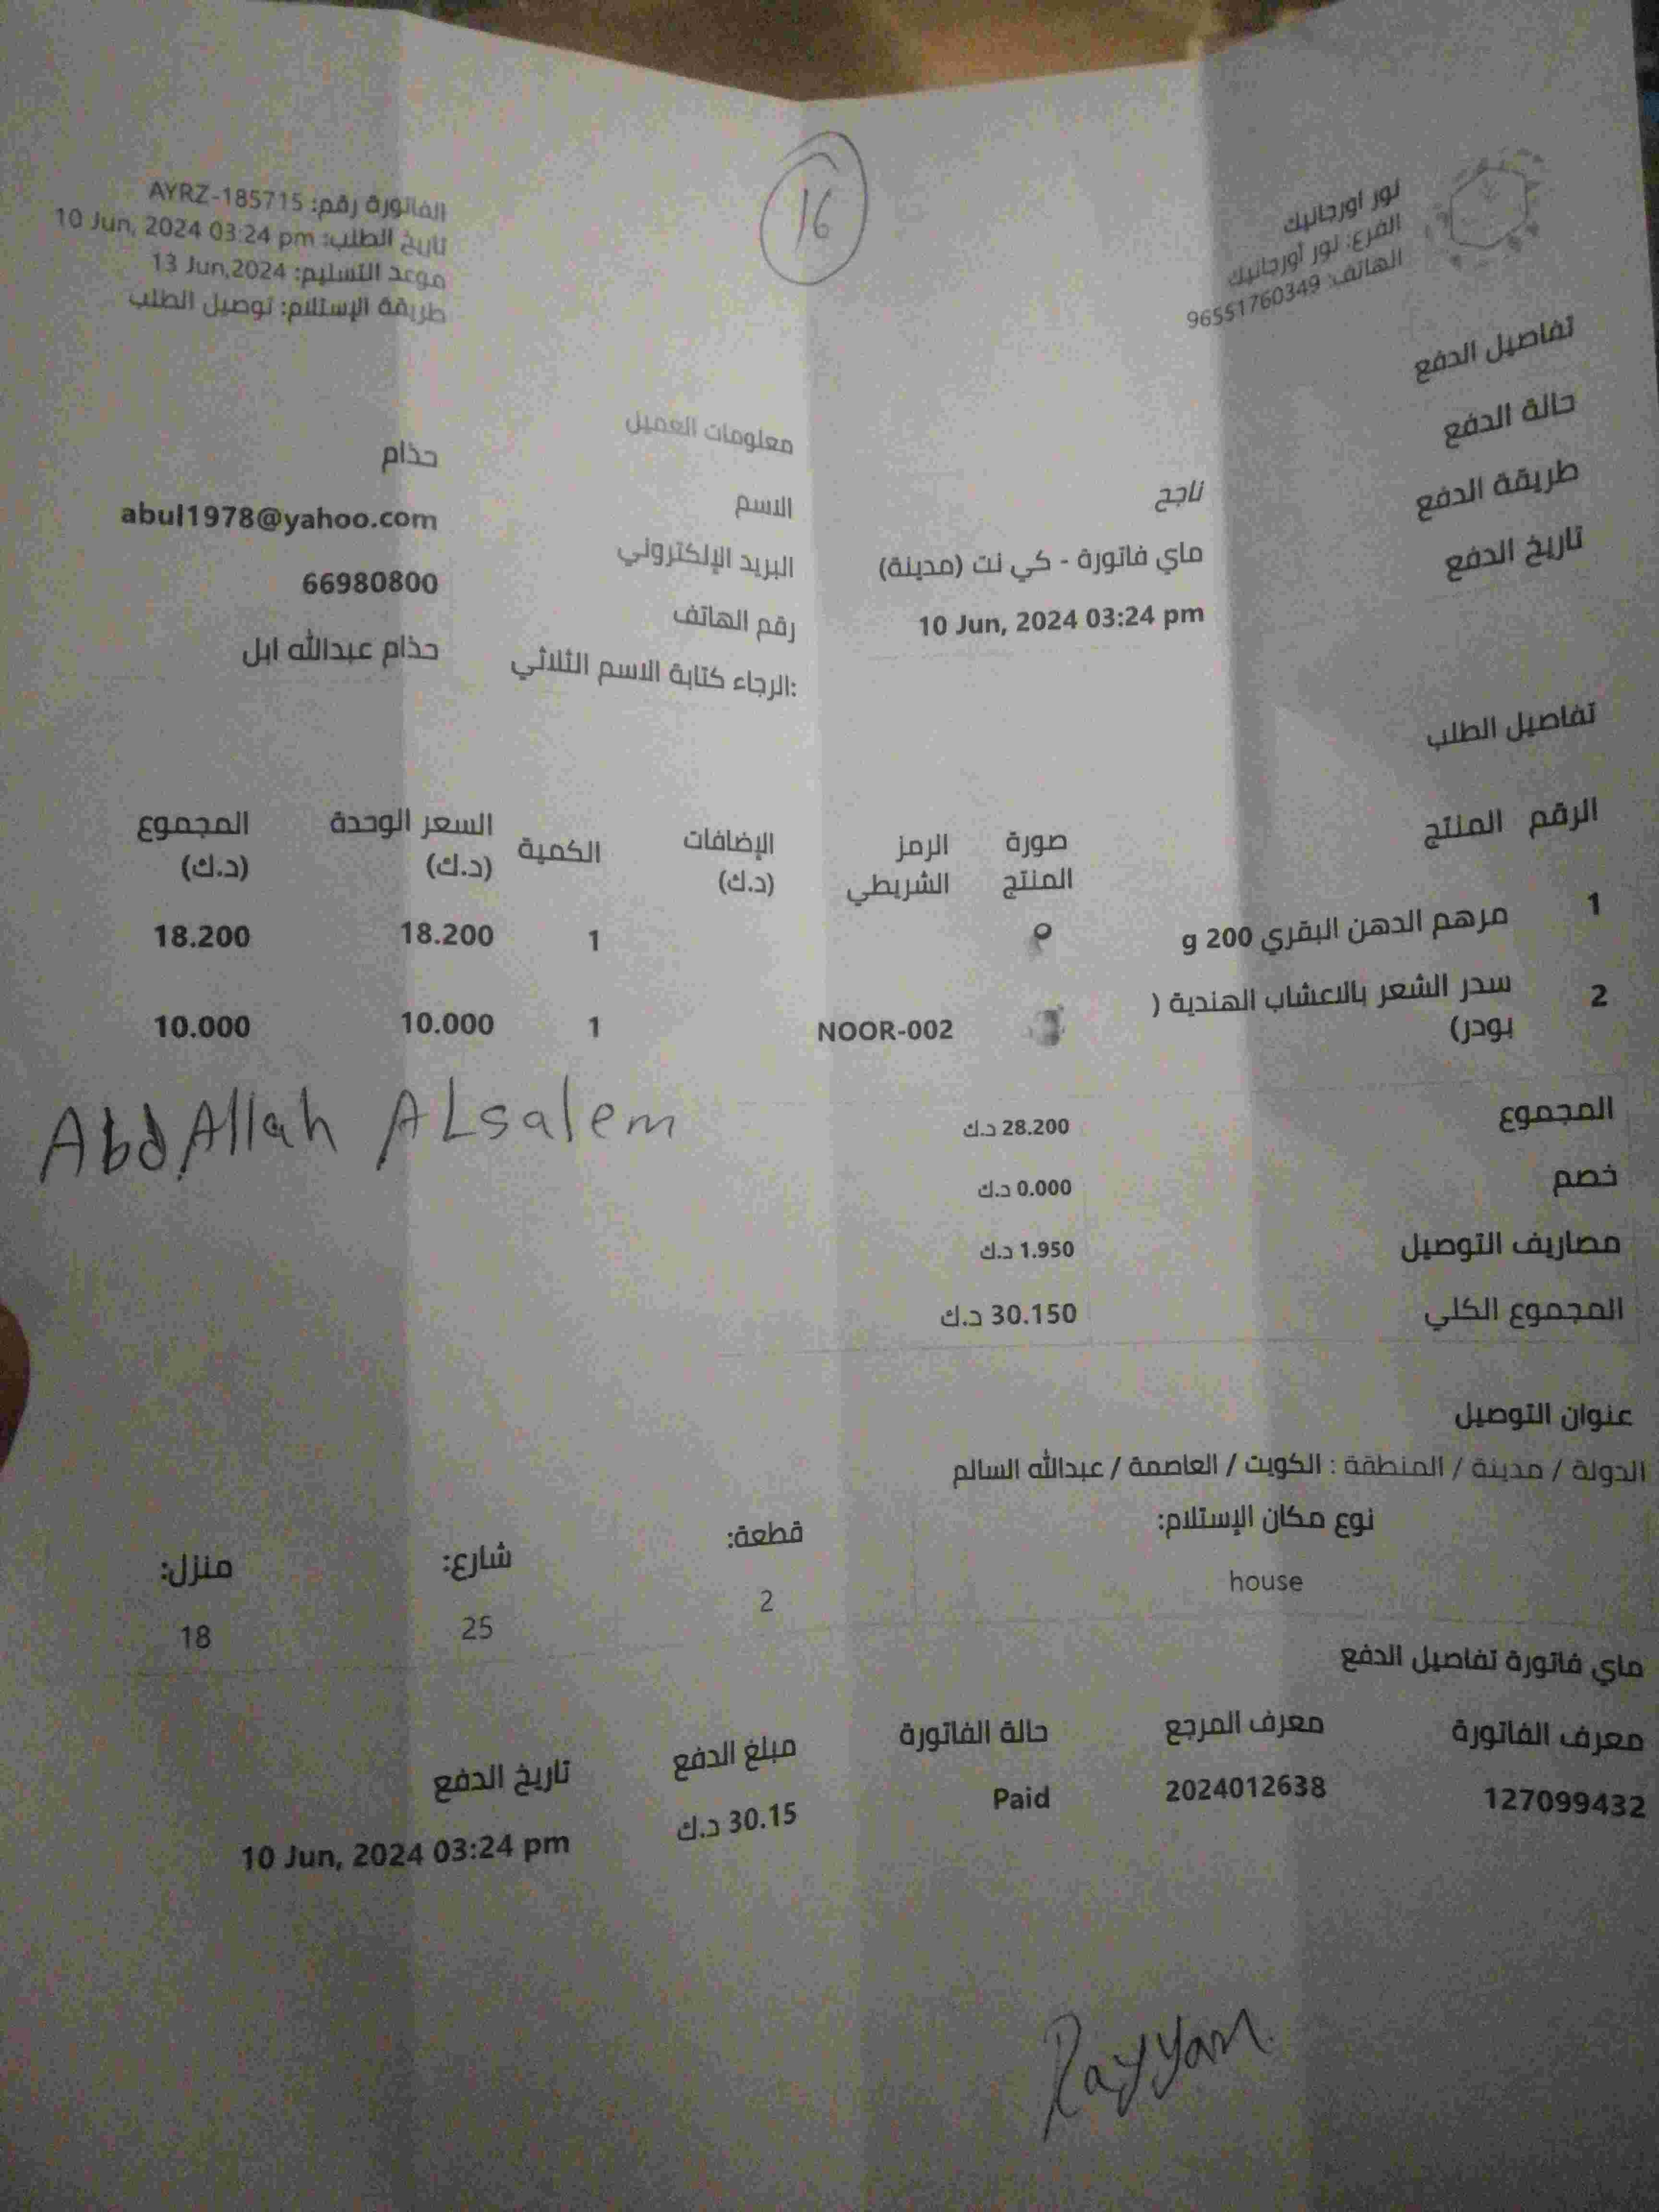 16
نور اورجانيك
الفرع: نور أورجانيك
الهاتف: 96551760349
الفاتورة رقم: AYRZ-185715
تاريخ الطلب: 10 Jun, 2024 03:24 pm
موعد التسليم: 13 Jun,2024
طريقة الإستلام: توصيل الطلب
تفاصيل الدفع
حالة الدفع ناجح
طريقة الدفع ماي فاتورة - كي نت (مدينة)
تاريخ الدفع 10 Jun, 2024 03:24 pm
معلومات العميل
الاسم حذام
البريد الإلكتروني abul1978@yahoo.com
رقم الهاتف 66980800
الرجاء كتابة الاسم الثلاثي: حذام عبدالله ابل
تفاصيل الطلب
الرقم المنتج صورة المنتج الرمز الشريطي الإضافات (د.ك) الكمية السعر الوحدة (د.ك) المجموع (د.ك)
1 مرهم الدهن البقري 200 g 1 18.200 18.200
2 سدر الشعر بالاعشاب الهندية ( بودر) NOOR-002 1 10.000 10.000
المجموع 28.200 د.ك
AbdAllah ALsalem
خصم 0.000 د.ك
مصاريف التوصيل 1.950 د.ك
المجموع الكلي 30.150 د.ك
عنوان التوصيل
الدولة / مدينة / المنطقة : الكويت / العاصمة / عبدالله السالم
نوع مكان الإستلام: قطعة: شارع: منزل:
house 2 25 18
ماي فاتورة تفاصيل الدفع
معرف الفاتورة معرف المرجع حالة الفاتورة مبلغ الدفع تاريخ الدفع
127099432 2024012638 Paid 30.15 د.ك 10 Jun, 2024 03:24 pm
Rayyan